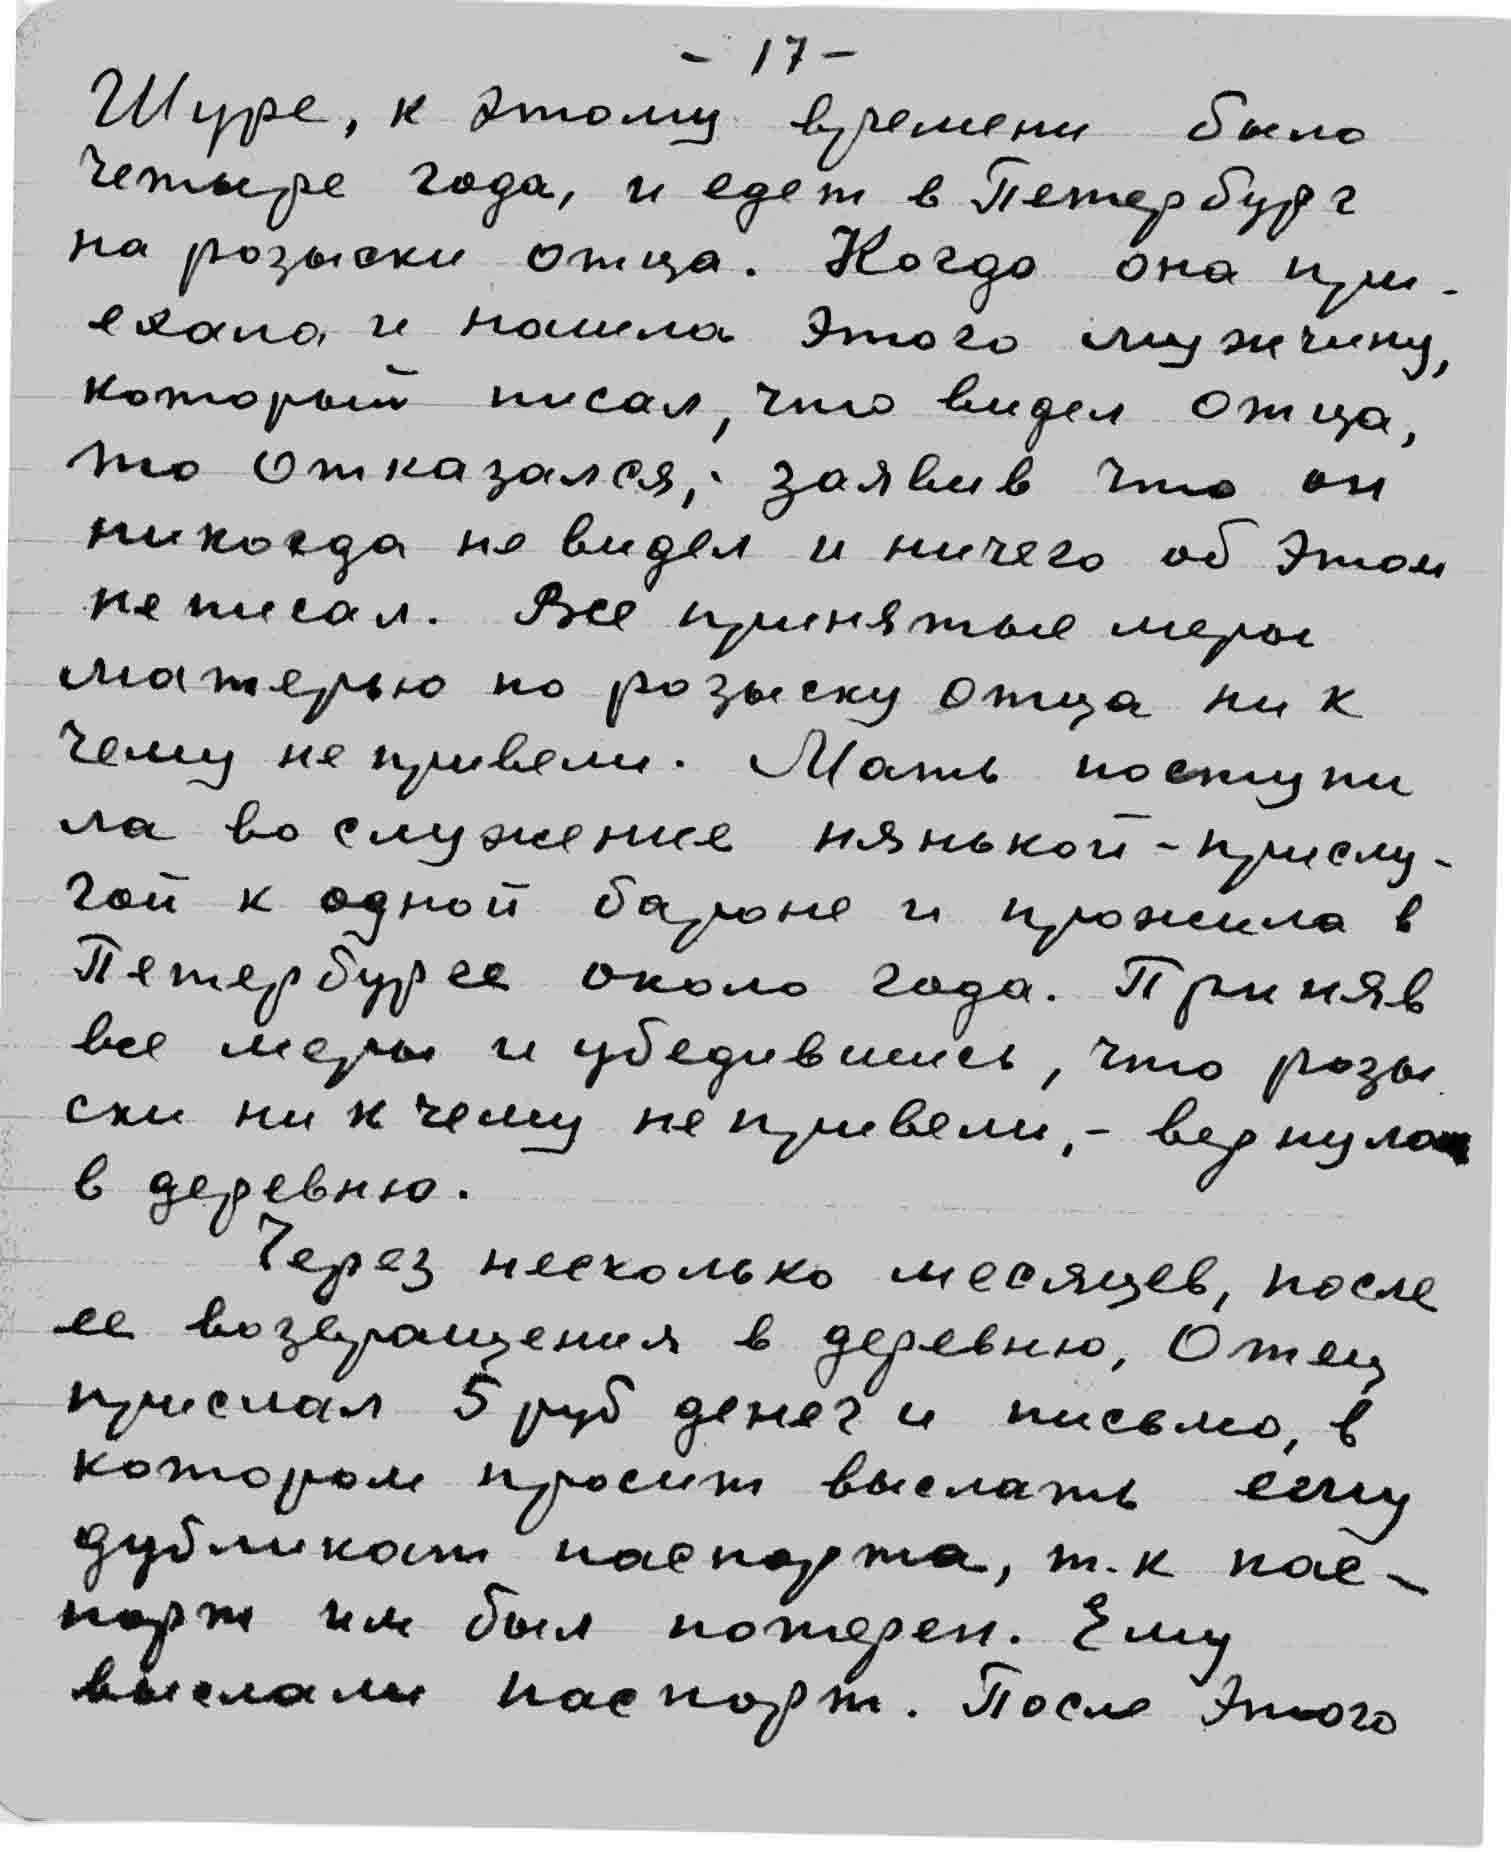 - 17 -
Шуре, к этому времени было
четыре года, и едет в Петербург
на розыски отца. Когда она при-
ехала и нашла этого мужчину,
который писал, что видел отца,
то отказался, заявив что он
никогда не видел и ничего об этом
не писал. Все принятые меры
матерью по розыску отца ни к
чему не привели. Мать поступи
ла во служение нянькой-прислу-
гой к одной бароне и прожила в
Петербурге около года. Приняв
все меры и убедившись, что розы
ски ни к чему не привели,- вернулась
в деревню.
Через несколько месяцев, после
ее возвращения в деревню, Отец
прислал 5 руб денег и письмо, в
котором просит выслать ему
дубликат паспорта, т.к пас-
порт им был потерен. Ему
выслали паспорт. После этого